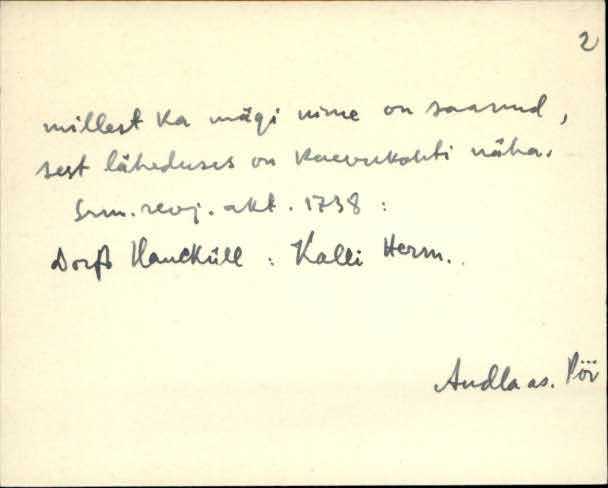 2
millest ka mägi nime on saanud,
sest läheduses on kaevukohti näha.
Srm. revj. akt. 1738 :
Dorf Hauckküll : Kalli Herm.
Audla as. Pöi